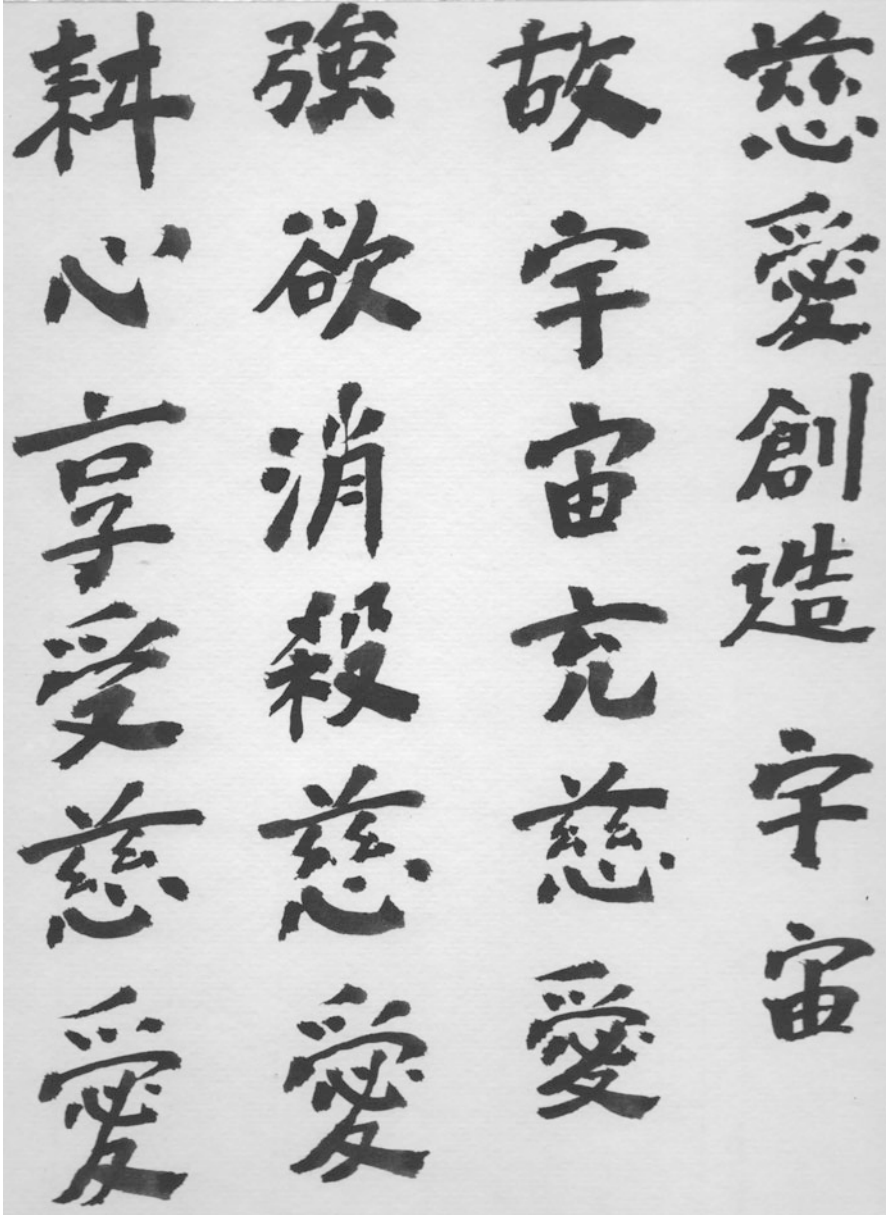 慈愛創造宇宙
故宇宙充慈愛
強欲消殺慈愛
耕心享受慈愛